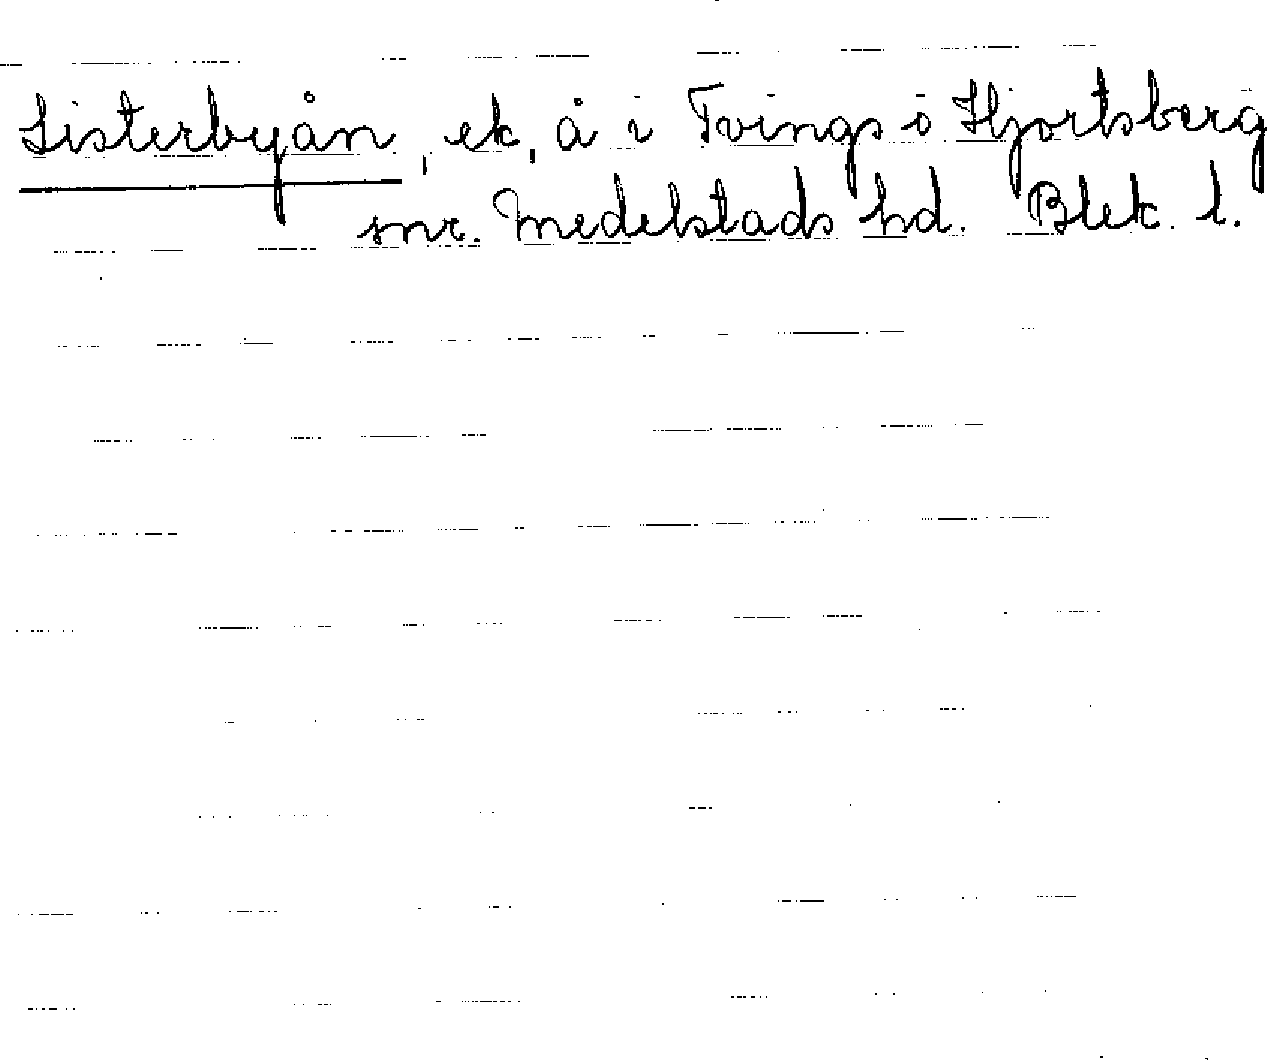 Listerbyån, ek, å i Tvings o Hjortsberg
snr. Medelstads hd. Blek. l.